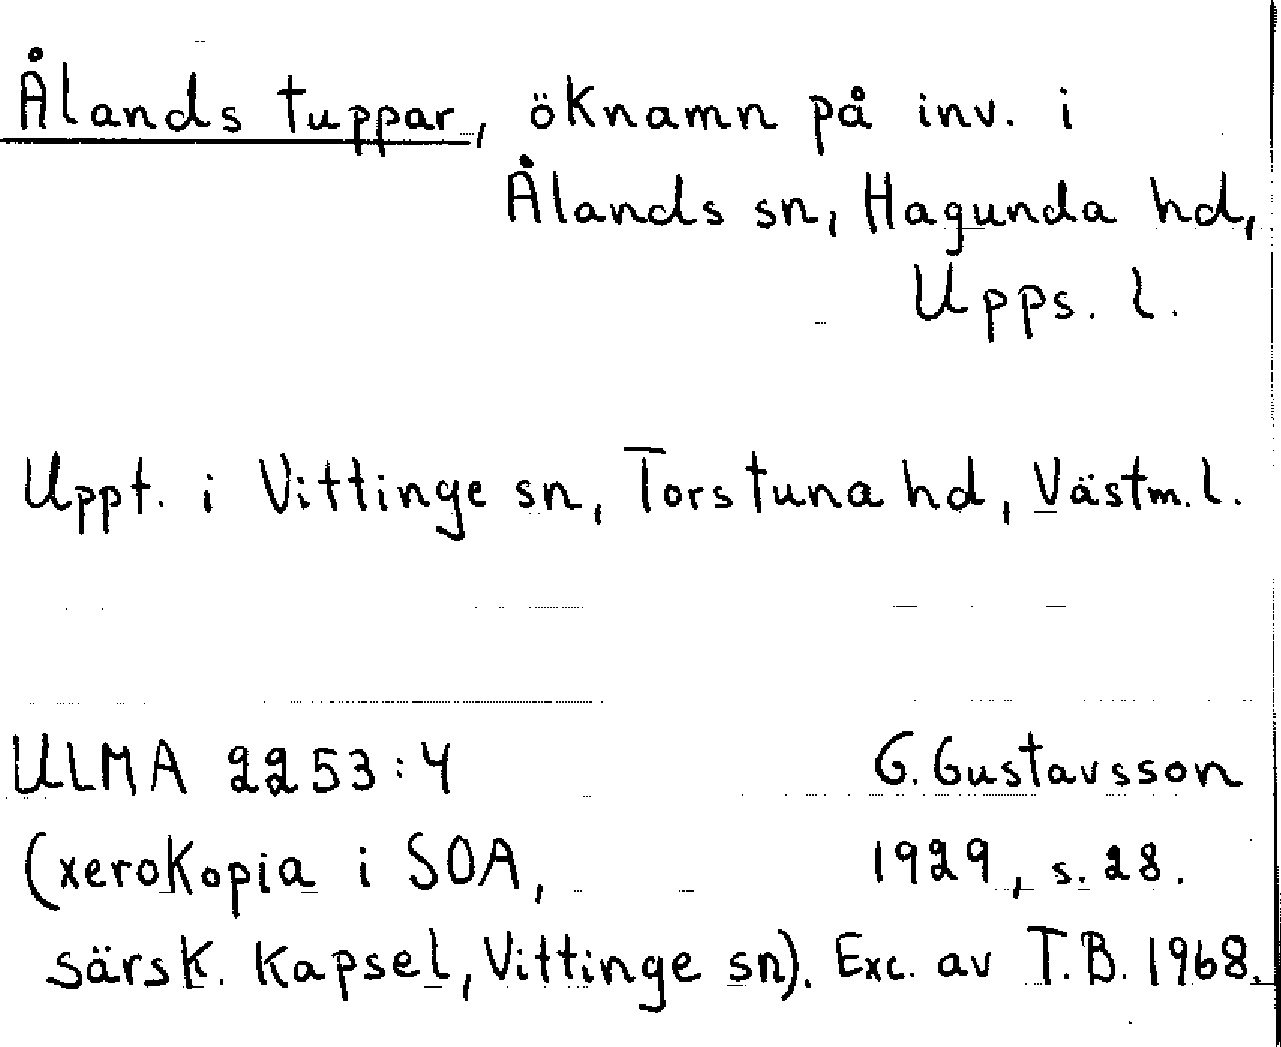 Ålands tuppar, öknamn på inv. i
Ålands sn, Hagunda hd,
Upps. l.
Uppt. i Vittinge sn, Torstuna hd, Västm. l.
ULMA 2253:4 G. Gustavsson
(xerokopia i SOA, 1929, s. 28.
särsk. kapsel, Vittinge sn). Exc. av T.B. 1968.